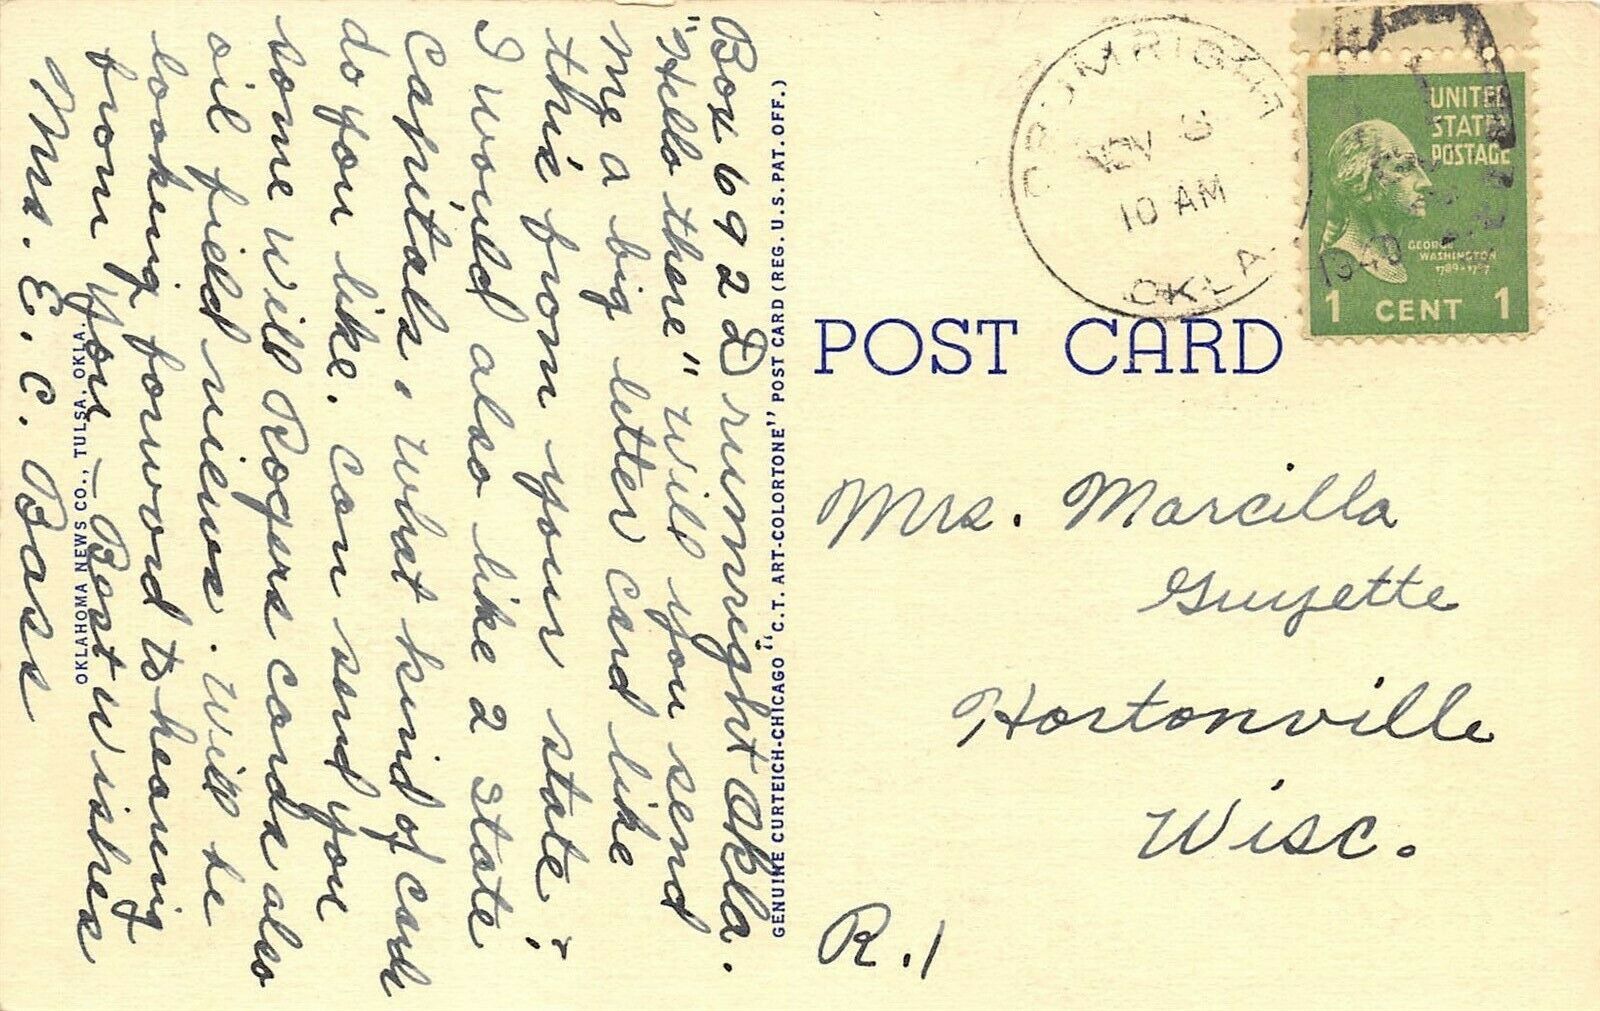 Box 692 Drumright Okla.
"Hello there" will you send
me a big letter card like
this from your state?
I would also like 2 state
Capitals, what kind of cards
do you like. Can send you
some Will Rogers cards also
oil field views. Will be
looking forward to hearing
from you – Best wishes
Mrs. E. C. Bass
OKLAHOMA NEWS CO., TULSA, OKLA.
GENUINE CURTEICH-CHICAGO "C.T. ART-COLORTONE" POST CARD (REG. U.S. PAT. OFF.)
DRUMRIGHT
NOV
10 AM
1940
OKLA.
UNITED
STATES
POSTAGE
GEORGE
WASHINGTON
1789-1797
1 CENT 1
POST CARD
Mrs. Marcilla
Guyette
Hortonville
Wisc.
R.1